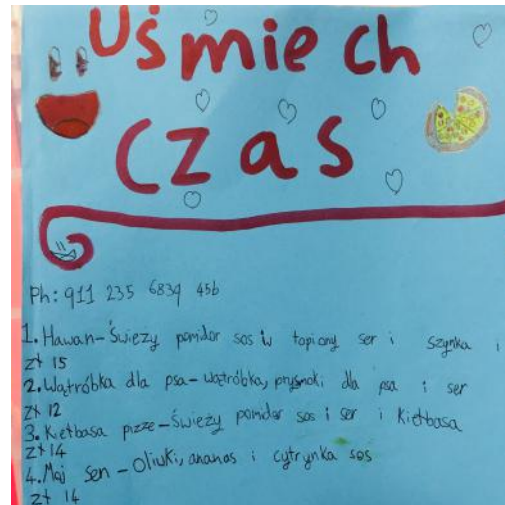 Uśmiech
czas
Ph: 911 235 6839 456
1. Hawan-Świeży pomidor sos i topiony ser i Szynka i
zł 15
2. Wątróbka dla psa-wątróbka, prysmoki dla psa i ser
Zł 12
3. Kiełbasa pizze-Świeży pomidor sos i ser i Kiełbasa
zł 14
4. Moj sen - Oliwki, ananas i cytrynka sos
zł 14